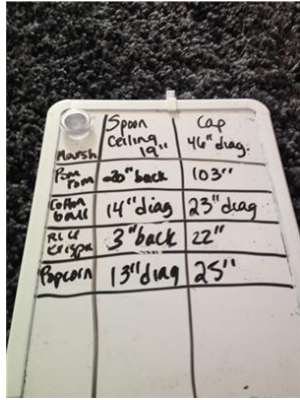 Spoon Cap
Ceiling 46" diag.
Marsh 19"
Pom Pom 20" back 103"
Cotton ball 14" diag 23" diag
Rice Krispie 3" back 22"
Popcorn 13" diag 25"